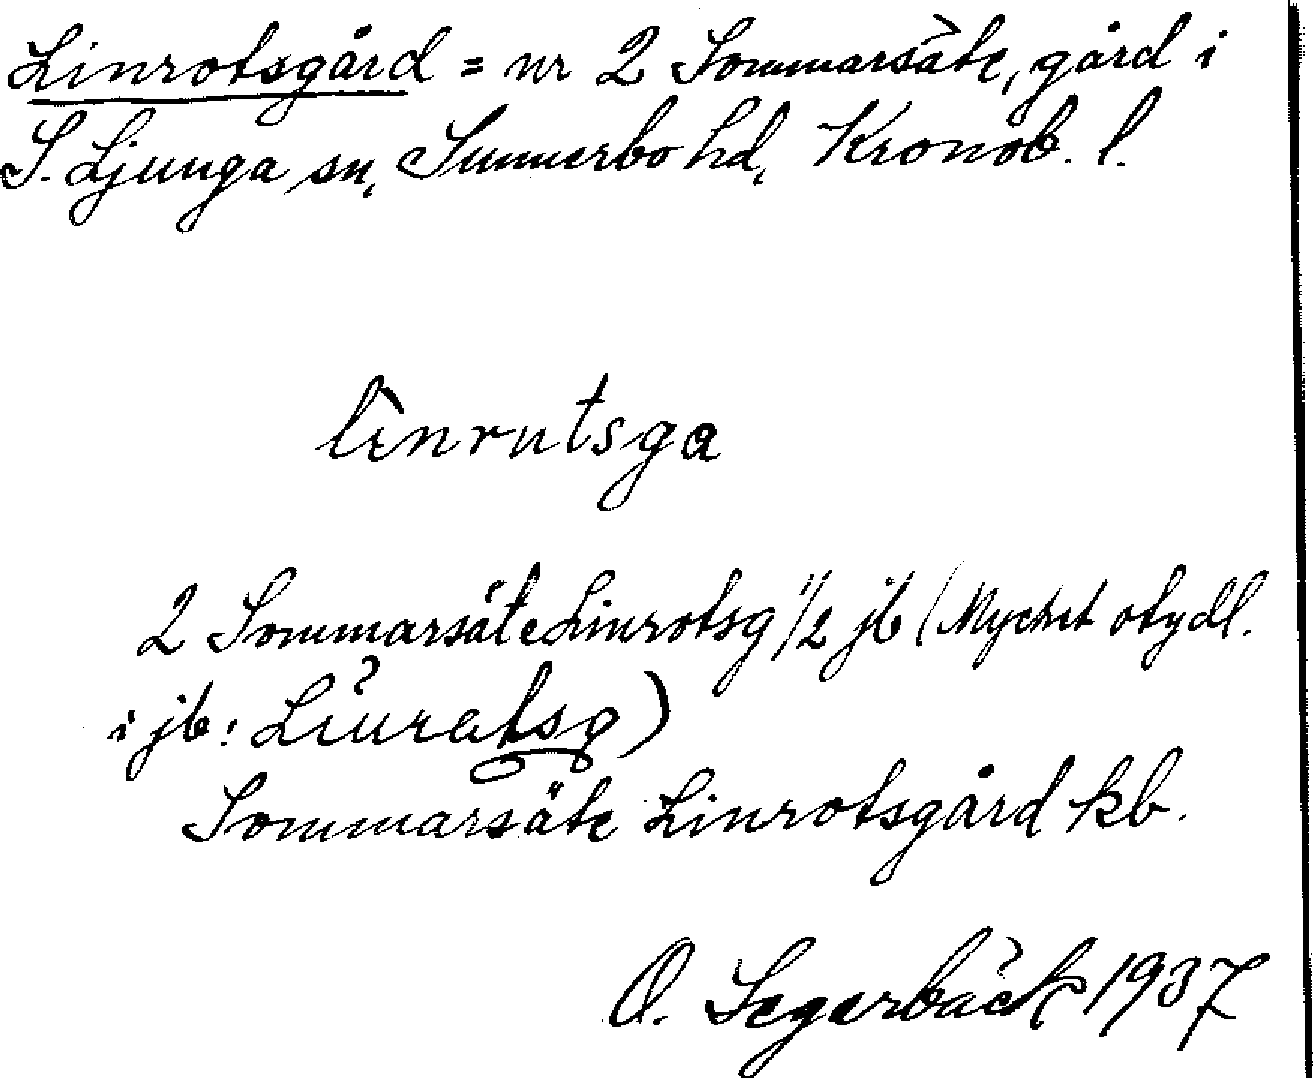 Linrotsgård = nr 2 Sommarsäte, gård i
S. Ljunga sn, Sunnerbo hd, Kronob. l.
linrutsga
2 Sommarsäte Linrotsg 1/2 jb (Mycket otydl.
i jb: Linratsg)
Sommarsäte Linrotsgård kb.
O. Segerbäck 1937